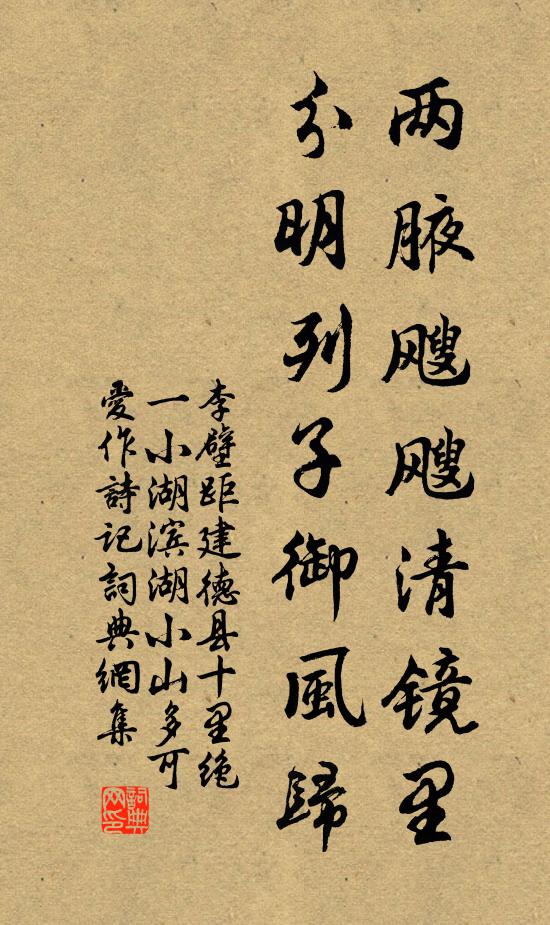 两腋飕飕清镜里
分明列子御風歸
李壁距建德县十里绝
一小湖滨湖小山多可
愛作詩记詞典網集
詞典网印